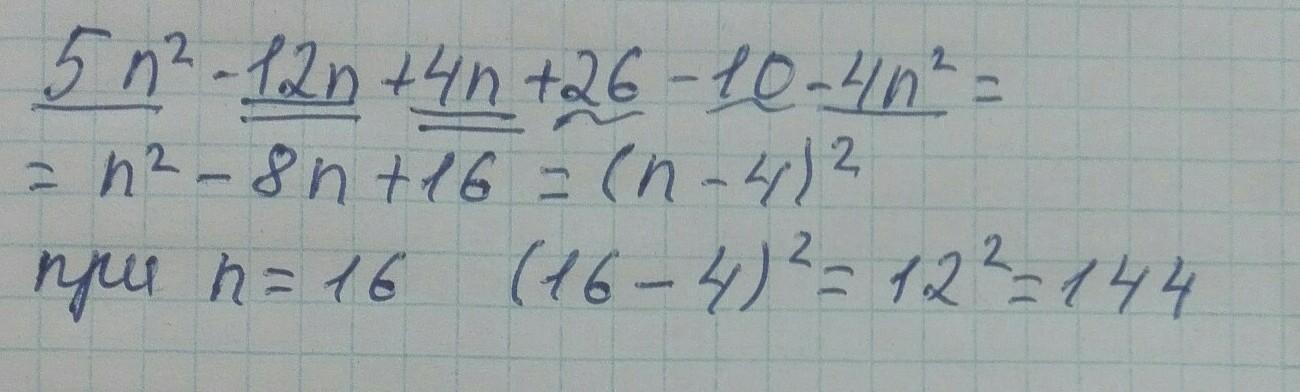 5n² - 12n + 4n + 26 - 10 - 4n² =
= n² - 8n + 16 = (n - 4)²
при n = 16 (16 - 4)² = 12² = 144